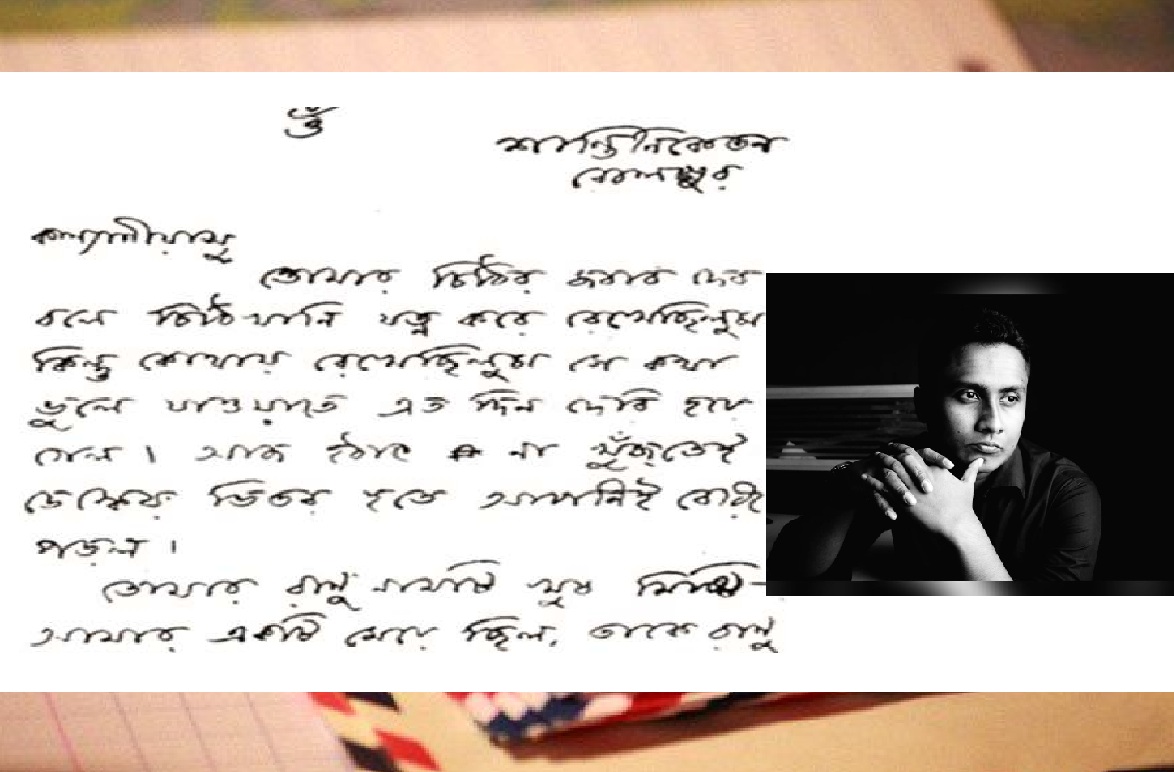 ওঁ
শান্তিনিকেতন
বোলপুর
কল্যাণীয়াসু
তোমার চিঠির জবাব দেব
বলে চিঠিখানি যত্ন করে রেখেছিলুম
কিন্তু কোথায় রেখেছিলুম সে কথা
ভুলে যাওয়াতে এত দিন দেরি হয়ে
গেল। আজ হঠাৎ না খুঁজতেই
ডেস্কের ভিতর হতে আপনিই বেরিয়ে
পড়ল।
তোমার রাণু নামটি খুব মিষ্টি—
আমার একটি মেয়ে ছিল, তাকে রাণু